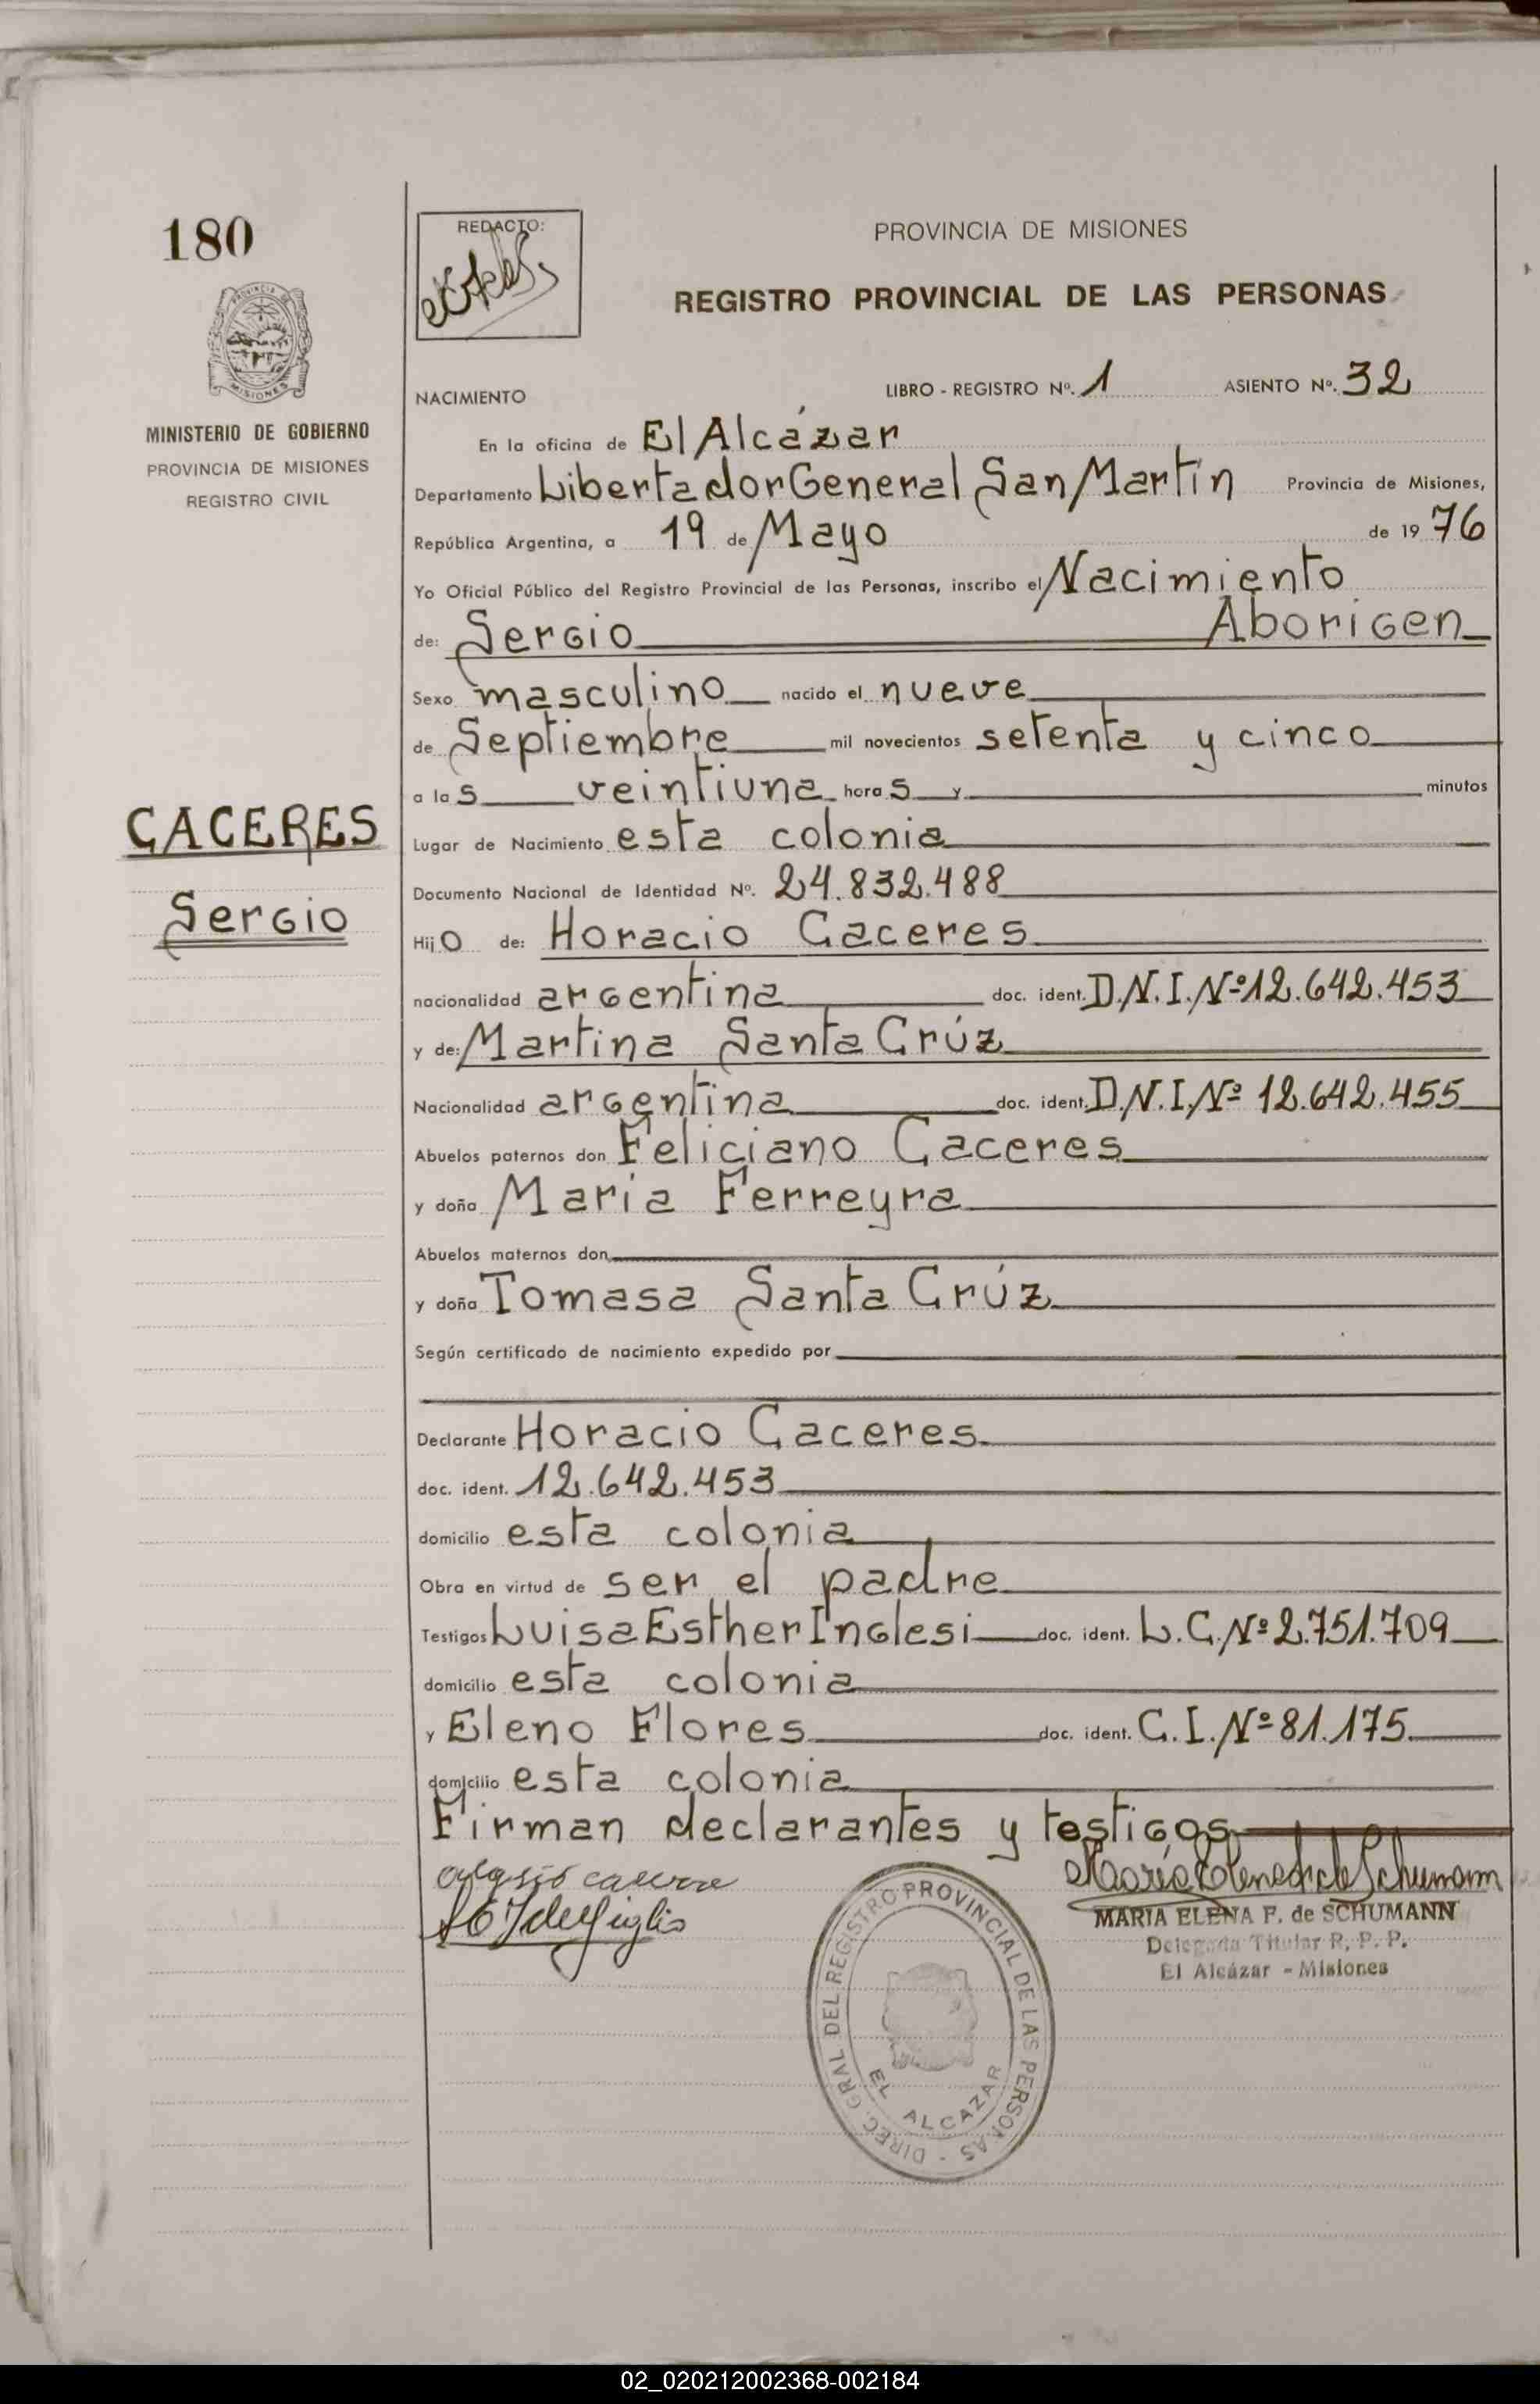 180
REDACTO:
PROVINCIA DE MISIONES
REGISTRO PROVINCIAL DE LAS PERSONAS
PROVINCIA DE MISIONES
MINISTERIO DE GOBIERNO
PROVINCIA DE MISIONES
REGISTRO CIVIL
CACERES
Sergio
NACIMIENTO LIBRO - REGISTRO Nº. 1 ASIENTO Nº. 32
En la oficina de El Alcázar
Departamento Libertador General San Martín Provincia de Misiones,
República Argentina, a 19 de Mayo de 1976
Yo Oficial Público del Registro Provincial de las Personas, inscribo el Nacimiento
de: Sergio Aborigen
Sexo masculino nacido el nueve
de Septiembre mil novecientos setenta y cinco
a las veintiuna horas y minutos
Lugar de Nacimiento esta colonia
Documento Nacional de Identidad Nº. 24.832.488
Hijo de: Horacio Caceres
nacionalidad argentina doc. ident. D.N.I.Nº12.642.453
y de: Martina Santa Crúz
Nacionalidad argentina doc. ident. D.N.I.Nº 12.642.455
Abuelos paternos don Feliciano Caceres
y doña Maria Ferreyra
Abuelos maternos don
y doña Tomasa Santa Crúz
Según certificado de nacimiento expedido por
Declarante Horacio Caceres
doc. ident. 12.642.453
domicilio esta colonia
Obra en virtud de ser el padre
Testigos Luisa Esther Inglesi doc. ident. L.C.Nº 2.751.709
domicilio esta colonia
y Eleno Flores doc. ident. C.I.Nº 81.175
domicilio esta colonia
Firman declarantes y testigos
María Elena F. de Schumann
MARIA ELENA F. de SCHUMANN
Delegada Titular R. P. P.
El Alcázar - Misiones
DIREC. GRAL DEL REGISTRO PROVINCIAL DE LAS PERSONAS -
EL ALCAZAR
02_020212002368-002184